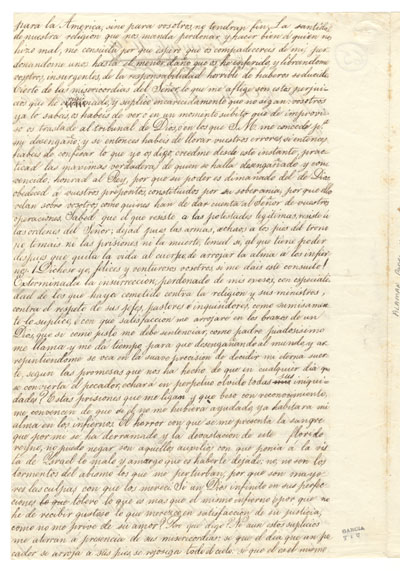 para la America, sino para vosotros, no tendran fin. La santidad
de nuestra religion que nos manda perdonar, y hacer bien á quien nos
hizo mal, me consuela, por que espero que os compadecereis de mi, per-
donandome unos hasta el menor daño que os he inferido, y librandome
vosotros, insurgentes, de la responsabilidad horrible de haberos seducido.
Cierto de las misericordias del Señor, lo que me aflige son estos perjui-
cios que he originado, y suplico encarecidamente que no sigan: vosotros
ya lo sabeis, os habeis de ver en un momento subito que de improvi-
so os traslade al tribunal de Dios, en los que S. M. me concede
mi desengaño; y si entonces habeis de llorar vuestros errores; si entonces
habeis de confesar lo que yo os digo, creedme desde este instante, prac-
ticad las maximas verdaderas de quien se halla desengañado y con-
vencido. honrad al Rey, por que su poder es dimanado del de Dios:
obedeced a vuestros prepositos, constituidos por su soberania, por que ellos
velan sobre vosotros, como quienes han de dar cuenta al Señor de vuestras
operaciones. Sabed que el que resiste á las potestades legitimas, resiste á
las ordenes del Señor: dejad pues las armas, echaos a los pies del trono
no temais ni las prisiones ni la muerte, temed si, al que tiene poder
despues que quita la vida al cuerpo, de arrojar la alma a los infier-
nos. ¡Dichoso yo, felices y venturosos vosotros si me dais este consuelo!
Exterminada la insurreccion, perdonado de mis excesos, con especiali-
dad de los que haya cometido contra la religion y sus ministros,
contra el respeto de sus jefes, pastores é inquisidores, como sumisamen-
te lo suplico, ó con que satisfaccion me arrojare en los brazos de un
Dios, que si como justo me debe sentenciar, como padre piadosisimo
me llama y me dá tiempo, para que desengañando al mundo y ar-
repintiendome se vea en la suave precision de decidir mi eterna suer-
te, segun las promesas que nos ha hecho de que en cualquier dia que
se convierta el pecador, echará en perpetuo olvido todas sus iniqui-
dades? Estas prisiones que me ligan, y que beso con reconocimiento,
me convencen de que si él no me hubiera ayudado, ya habitara mi
alma en los infiernos. El horror con que se me presenta la sangre
que por mi se ha derramado y la devastacion de este florido
reino, ne puedo negar son aquellos auxilios con que ponia á la vis-
ta de Israel lo malo y amargo que es haberle dejado; no, no son los
tormentos del abismo los que me perturban, por que son mayo-
res las culpas con que los merecí. Si un Dios infinito en sus perfec-
ciones lo que tolero, lo que es mas que el mismo infierno ¿por que no
he de recibir gustoso lo que merezca en satisfaccion de su justicia,
como no me prive de su amor? ¿Por que digo? Ni aun estos suplicios
me aterran á presencia de sus misericordias: se que el dia que un pe-
cador se arroja á sus pies, se regocija todo el cielo, sé que él es el mismo
GARCIA